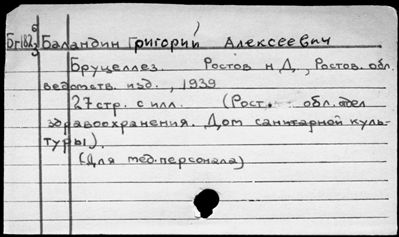 Бг182₃ Баландин Григорий Алексеевич
Бруцеллез Ростов н Д, Ростов. обл.
ведомств. изд., 1939
27 стр. с илл. (Рост. обл. отдел
здравоохранения. Дом санитарной куль-
туры).
(Для мед. персонала)